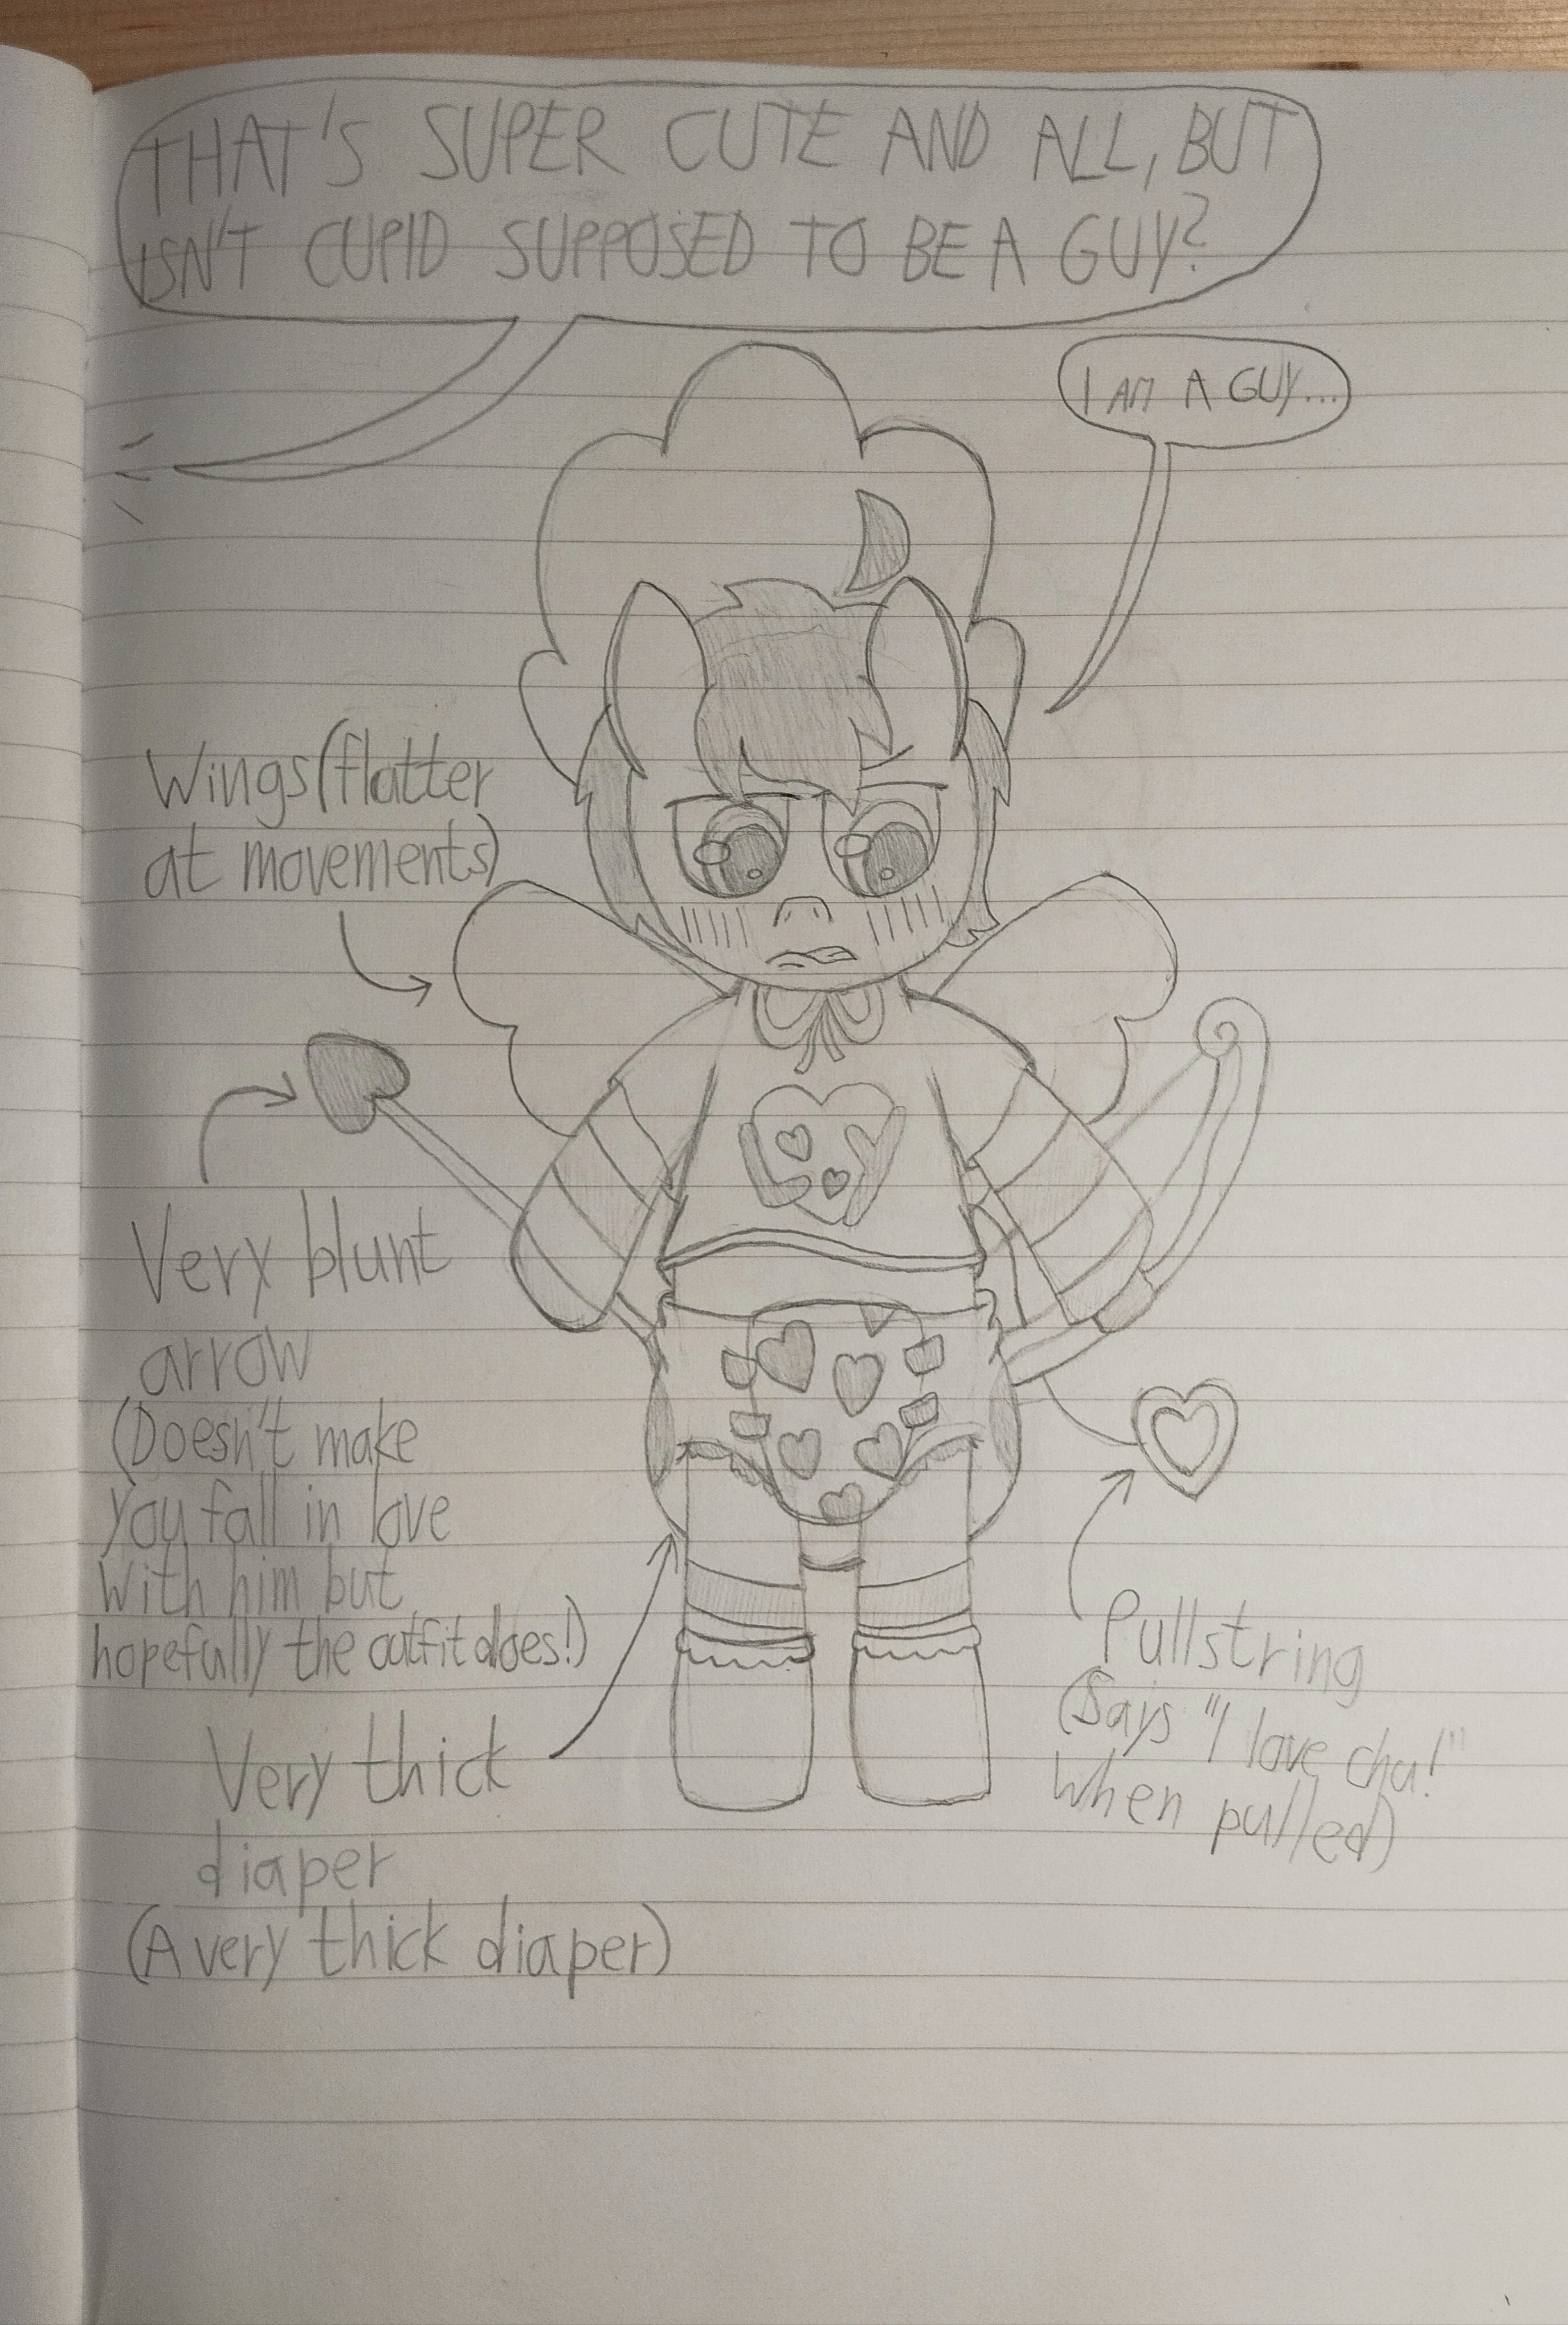 THAT'S SUPER CUTE AND ALL, BUT
ISN'T CUPID SUPPOSED TO BE A GUY?
I AM A GUY...
Wings (flatter
at movements)
Very blunt
arrow
(Doesn't make
you fall in love
with him but
hopefully the outfit does!)
Very thick
diaper
(A very thick diaper)
Pullstring
(Says "I love chu!"
When pulled)